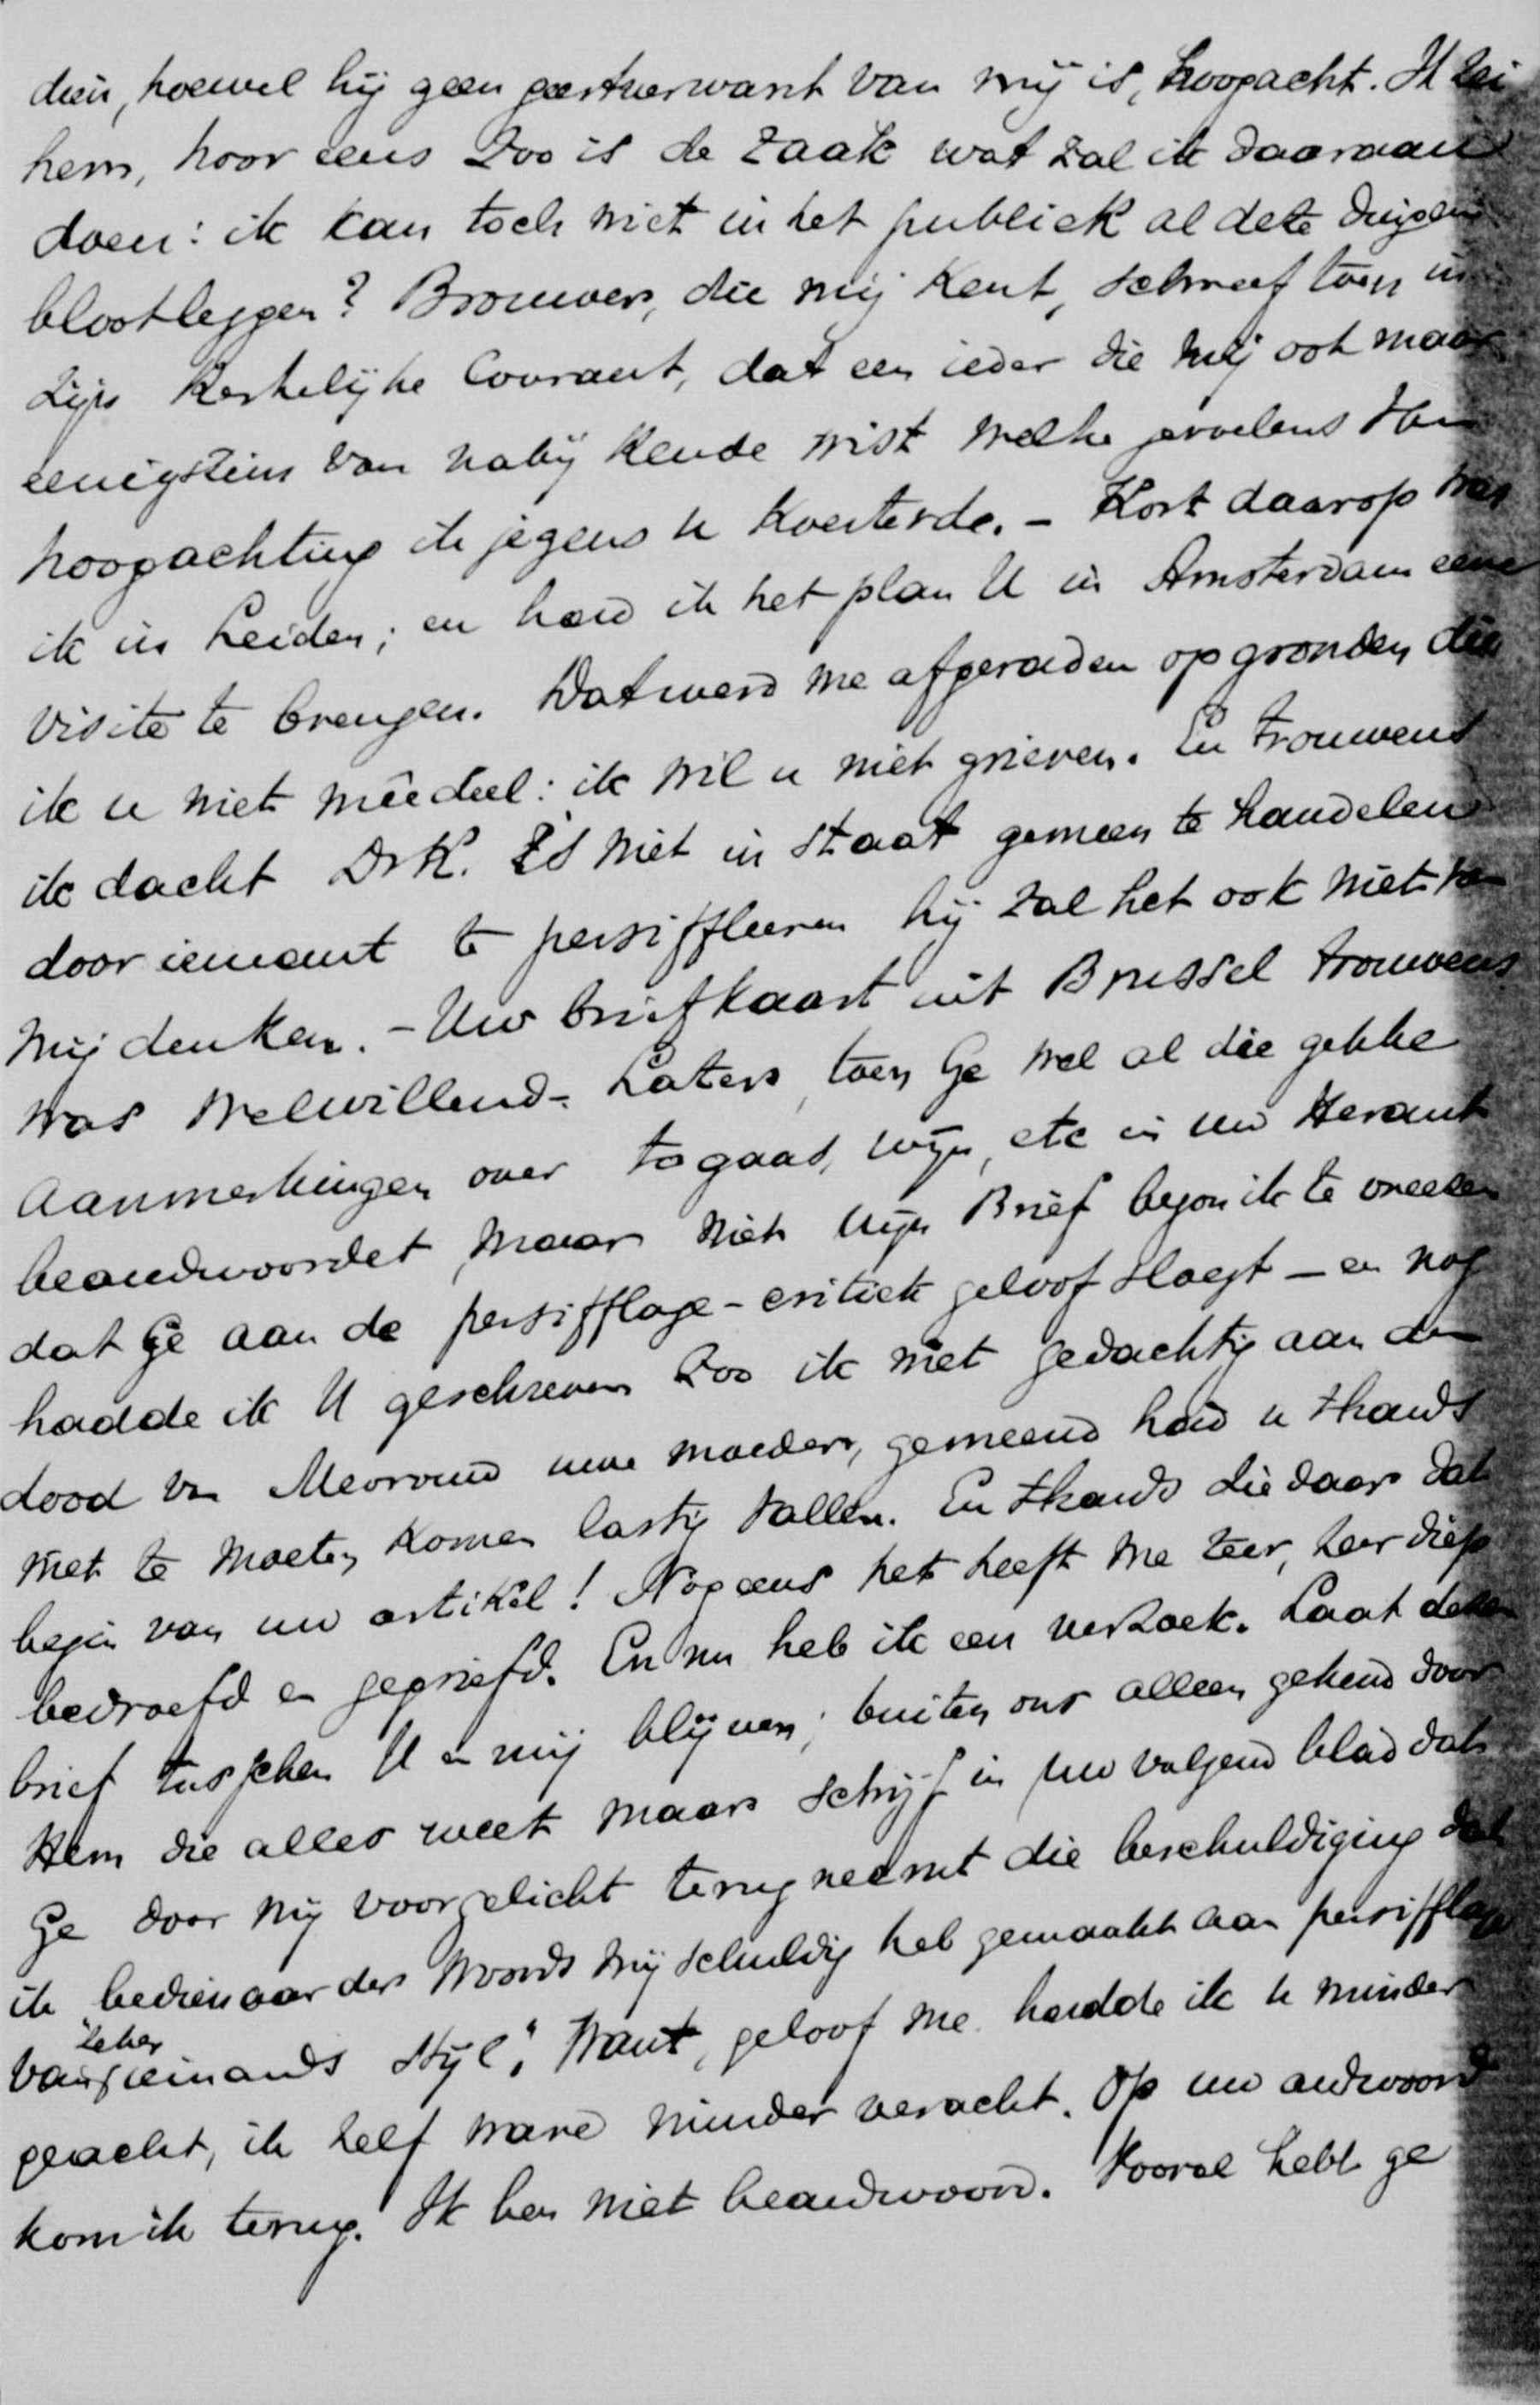 dien, hoewel hij geen geestverwant van mij is, hoogacht. Ik zei
hem, hoor eens Zoo is de zaak wat zal ik daaraan
doen: ik kan toch niet in het publiek al deze dingen
blootleggen? Brouwer, die mij kent, schreef toen in
zijn Kerkelijke Courant, dat een ieder die mij ook maar
eenigszins van nabij kende wist welke gevoelens van
hoogachting ik jegens u koesterde. – Kort daarop was
ik in Leiden; en had ik het plan U in Amsterdam eene
visite te brengen. Dat werd me afgeraden op gronden die
ik u niet meêdeel: ik wil u niet grieven. En trouwens
ik dacht Dr K. is niet in staat gemeen te handelen
door iemant te persiffleeren hij zal het ook niet van
mij denken. – Uw briefkaart uit Brussel trouwens
was welwillend – Later, toen Ge wel al die gekke
aanmerkingen over togaas, wijn, etc in uw Heraut
beandwoordet, maar niet mijn Brief begon ik te vreezen
dat Ge aan de persifflage-critiek geloof sloegt – en nog
hadde ik U geschreven Zoo ik niet gedachtig aan den
dood van Mevrouw uwe moeder, gemeend had u thands
niet te moeten komen lastig vallen. En thands die daar dat
begin van uw artikel! Nogeens het heeft me zeer, zeer diep
bedroefd en gegriefd. En nu heb ik een verzoek. Laat dezen
brief tusschen U en mij blijven; buiten ons alleen gekend door
Hem die alles weet maar schrijf in uw volgend blad dat
Ge door mij voorgelicht terugneemt die beschuldiging dat
ik bedienaar des Woords mij schuldig heb gemaakt aan persifflage
van "zeker iemands stijl". Want, geloof me hadde ik u minder
geacht, ik zelf ware minder veracht. Op uw andwoord
kom ik terug. Ik ben niet beandwoord. Vooral hebt ge